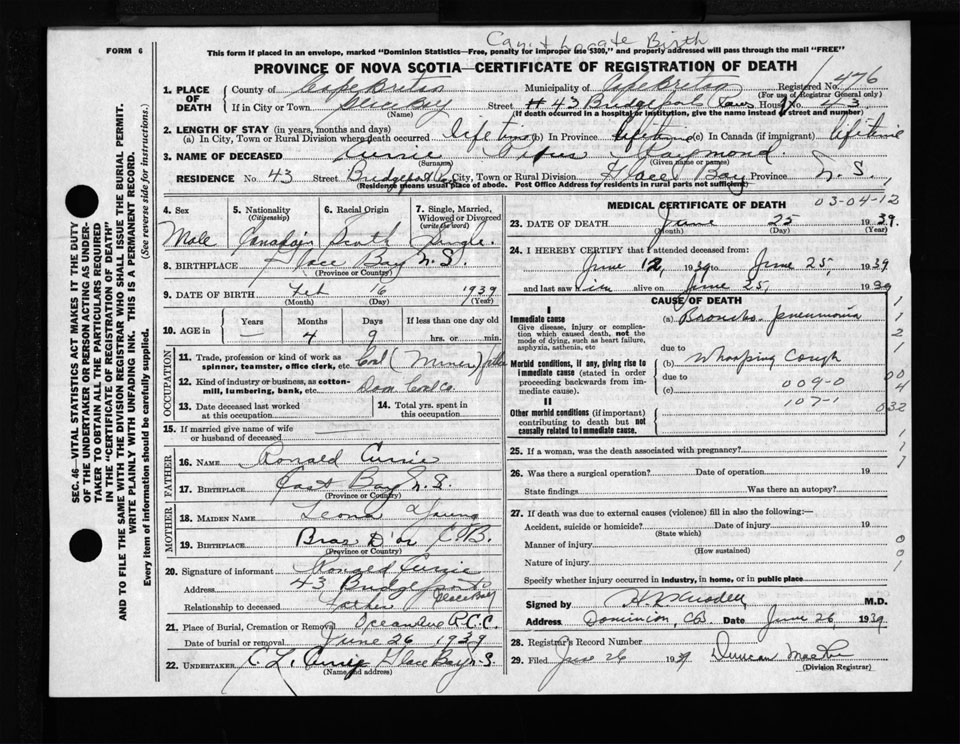 Can't locate Birth
FORM 6
This form if placed in an envelope, marked "Dominion Statistics—Free, penalty for improper use $300," and properly addressed will pass through the mail "FREE"
PROVINCE OF NOVA SCOTIA—CERTIFICATE OF REGISTRATION OF DEATH
SEC. 46—VITAL STATISTICS ACT MAKES IT THE DUTY
OF THE UNDERTAKER OR PERSON ACTING AS UNDER-
TAKER TO OBTAIN ALL THE PARTICULARS REQUIRED
IN THE "CERTIFICATE OF REGISTRATION OF DEATH"
AND TO FILE THE SAME WITH THE DIVISION REGISTRAR WHO SHALL ISSUE THE BURIAL PERMIT.
WRITE PLAINLY WITH UNFADING INK. THIS IS A PERMANENT RECORD.
Every item of information should be carefully supplied. (See reverse side for instructions.)
1. PLACE OF DEATH
County of Cape Breton Municipality of Cape Breton Registered No. 476
(For use of Registrar General only)
If in City or Town Glace Bay Street # 43 Bridgeport House No. 43
(Name) (If death occurred in a hospital or institution, give the name instead of street and number)
2. LENGTH OF STAY (in years, months and days)
(a) In City, Town or Rural Division where death occurred life time (b) In Province lifetime (c) In Canada (if immigrant) lifetime
3. NAME OF DECEASED Currie Pius Raymond
(Surname) (Given name or names)
RESIDENCE No. 43 Street Bridgeport City, Town or Rural Division Glace Bay Province N. S.
(Residence means usual place of abode. Post Office Address for residents in rural parts not sufficient)
4. Sex Male
5. Nationality (Citizenship) Canadian
6. Racial Origin Scotch
7. Single, Married, Widowed or Divorced (write the word) Single.
8. BIRTHPLACE Glace Bay N.S.
(Province or Country)
9. DATE OF BIRTH Feb 16 1939
(Month) (Day) (Year)
10. AGE in Years — Months 4 Days 9 If less than one day old hrs. or min.
OCCUPATION
11. Trade, profession or kind of work as spinner, teamster, office clerk, etc. Coal (Miner) father
12. Kind of industry or business, as cotton-mill, lumbering, bank, etc. Dom Coal Co.
13. Date deceased last worked at this occupation
14. Total yrs. spent in this occupation
15. If married give name of wife or husband of deceased
FATHER
16. NAME Ronald Currie
17. BIRTHPLACE East Bay N.S.
(Province or Country)
MOTHER
18. MAIDEN NAME Leona Young
19. BIRTHPLACE Bras D'or C.B.
(Province or Country)
20. Signature of informant Ronald Currie
Address 43 Bridgeport Glace Bay
Relationship to deceased father
21. Place of Burial, Cremation or Removal R.C.C.
Date of burial or removal June 26 1939
22. UNDERTAKER C. L. Currie Glace Bay N.S.
(Name and address)
MEDICAL CERTIFICATE OF DEATH
03-04-12
23. DATE OF DEATH June 25 1939.
(Month) (Day) (Year)
24. I HEREBY CERTIFY that I attended deceased from:
June 12, 1939 to June 25, 1939
and last saw him alive on June 25, 1939
CAUSE OF DEATH
I
Immediate cause
Give disease, injury or complication which caused death, not the mode of dying, such as heart failure, asphyxia, asthenia, etc
(a) Broncho-pneumonia
due to
Morbid conditions, if any, giving rise to immediate cause (stated in order proceeding backwards from immediate cause).
(b) Whooping Cough
due to 009-0
(c) 107-1
II
Other morbid conditions (if important) contributing to death but not causally related to immediate cause.
1
1
2
1
00
4
032
25. If a woman, was the death associated with pregnancy?
26. Was there a surgical operation? Date of operation 19
State findings Was there an autopsy?
27. If death was due to external causes (violence) fill in also the following:—
Accident, suicide or homicide? Date of injury 19
(State which)
Manner of injury
(How sustained)
Nature of injury
0
0
1
Specify whether injury occurred in industry, in home, or in public place
Signed by M.D.
Address Dominion, CB. Date June 26, 1939
28. Registrar's Record Number
29. Filed June 26 1939 Duncan
(Division Registrar)